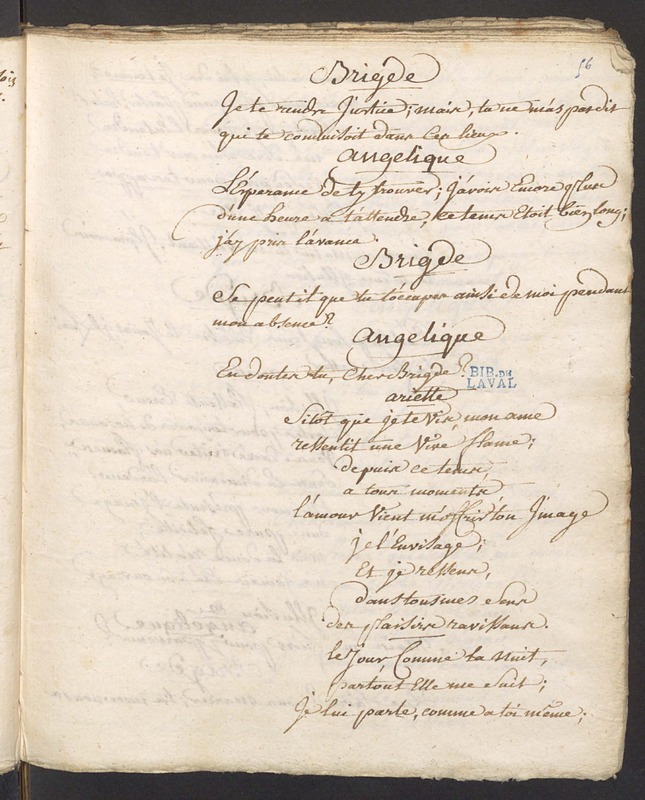 56
Brigde
Je te rendre Justice; mais, tu ne m'as pas dit
qui te conduisoit dans ces lieux.
angelique
L'Esperance de ty trouver; J'avois Encore plus
d'une heure a t'attendre, ce tems Etoit bien long;
j'ay pris l'avance.
Brigde
Se peut it que tu t'occupes ainsi de moi pendant
mon absence?
angelique
En doutes tu, Cher Brigde?
BIB. DE
LAVAL
ariette
Sitôt que je te Vis, mon ame
ressentit une Vive flame;
depuis ce tems,
a tous moments,
l'amour Vient m'offrir ton Jmage
je l'Envisage;
Et je ressens,
dans tous mes sens
des plaisirs ravissans.
le Jour Comme la nuit,
partout Elle me suit;
Je lui parle, comme a toi même;